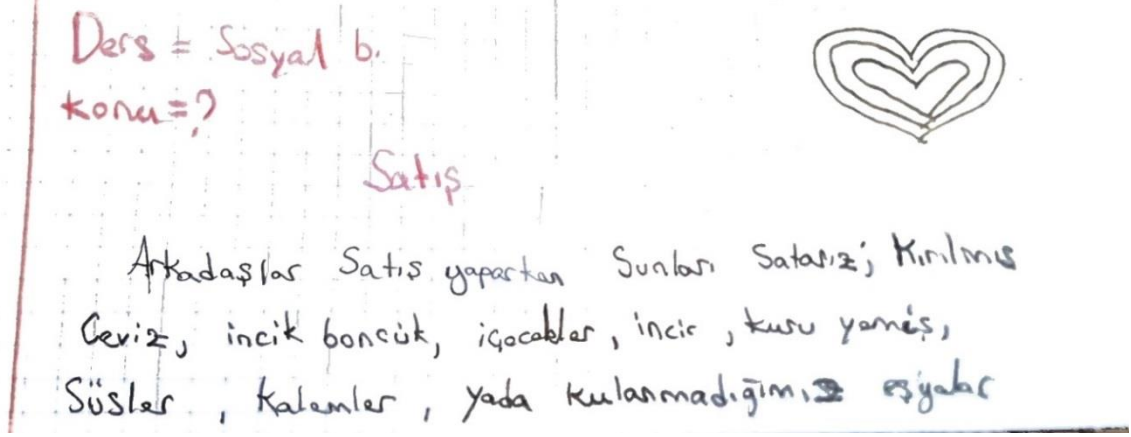 Ders = Sosyal b.
Konu = ?
Satış
Arkadaşlar Satış yaparken Sunları Satarız; Kırılmıs
Ceviz, incik boncuk, içecekler, incir, kuru yemiş,
Süsler, Kalemler, yada kulanmadığımız eşyalar